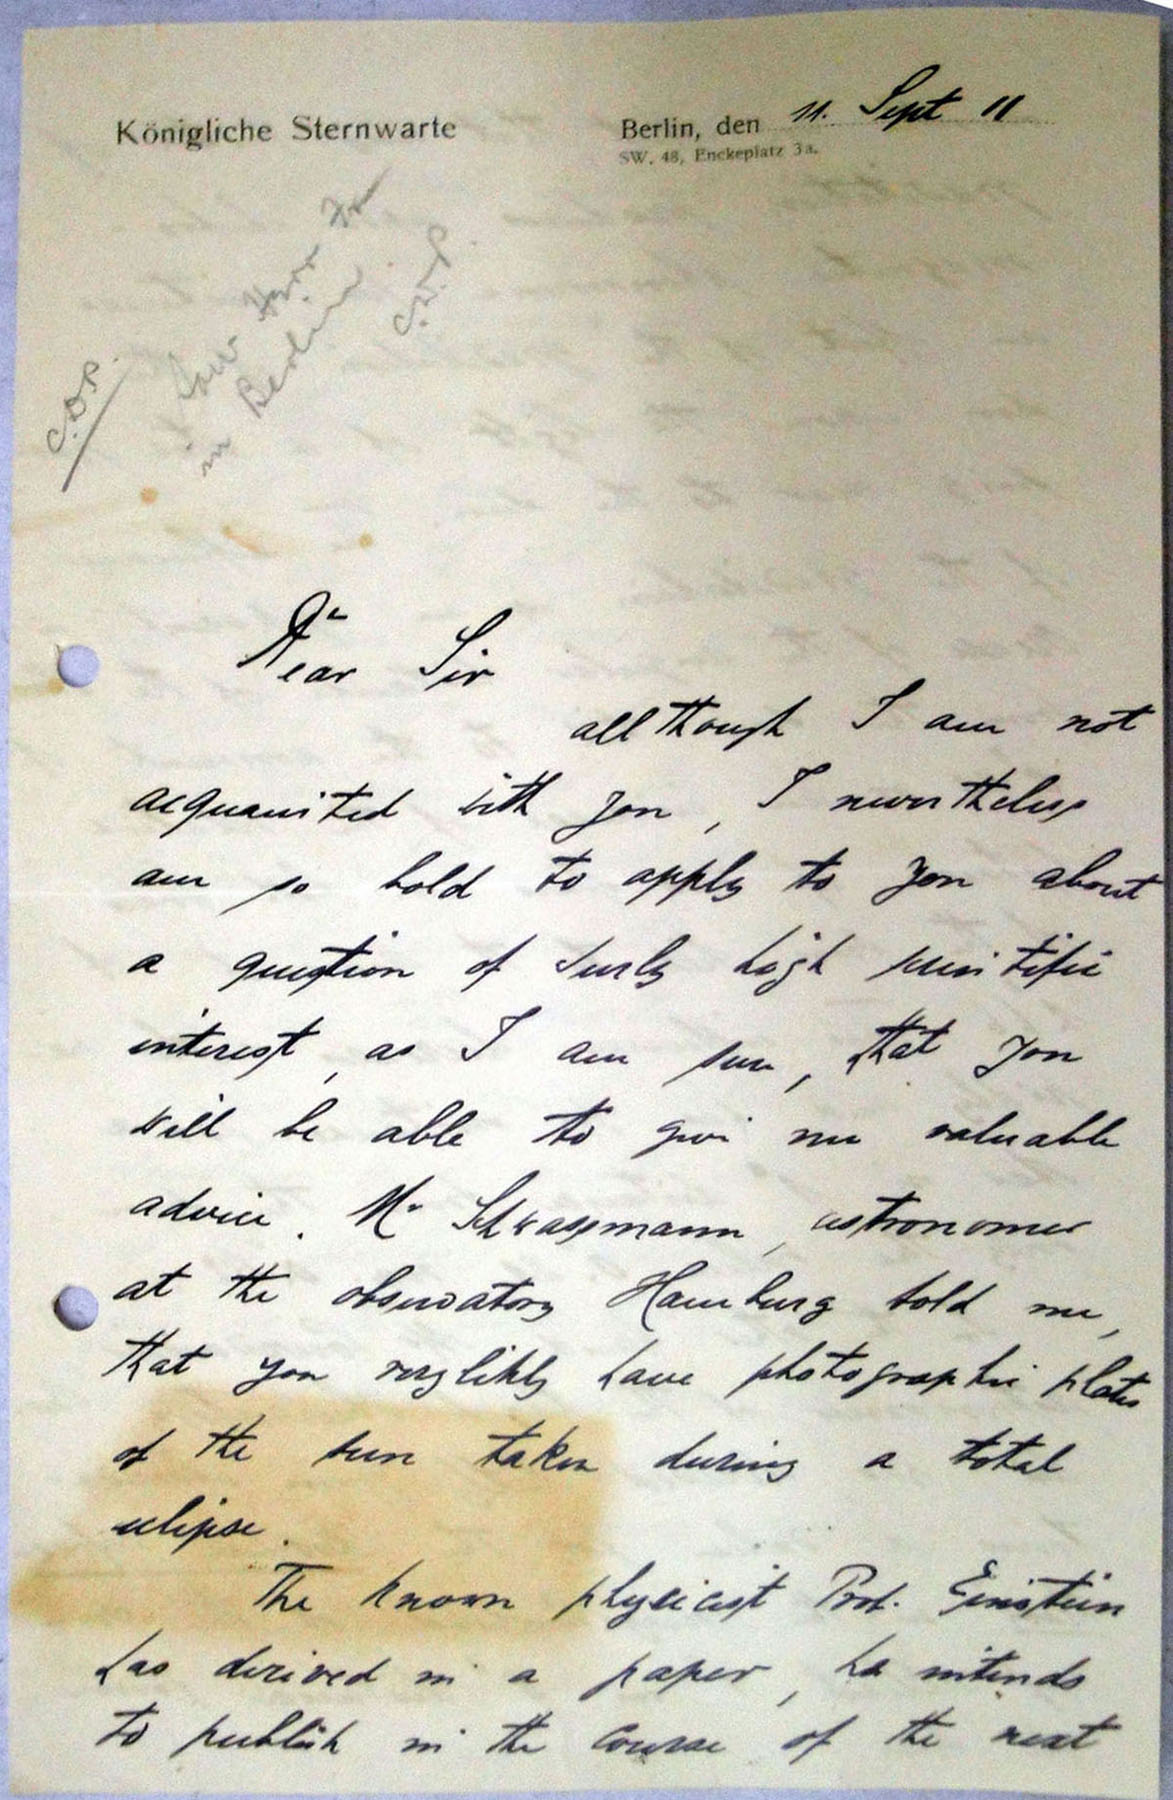 Königliche Sternwarte
Berlin, den 11. Sept 11
SW. 48, Enckeplatz 3a.
Saw Herr Fr
in Berlin
C.D.P.
C.D.P.
Dear Sir
allthough I am not
acquainted with you, I nevertheless
am so bold to apply to you about
a question of surely high scientific
interest, as I am sure, that you
will be able to give me valuable
advice. Mr Schwassmann, astronomer
at the observatory Hamburg told me,
that you very likely have photographic plates
of the sun taken during a total
eclipse.
The known physicist Prof. Einstein
has derived in a paper, he intends
to publish in the course of the next